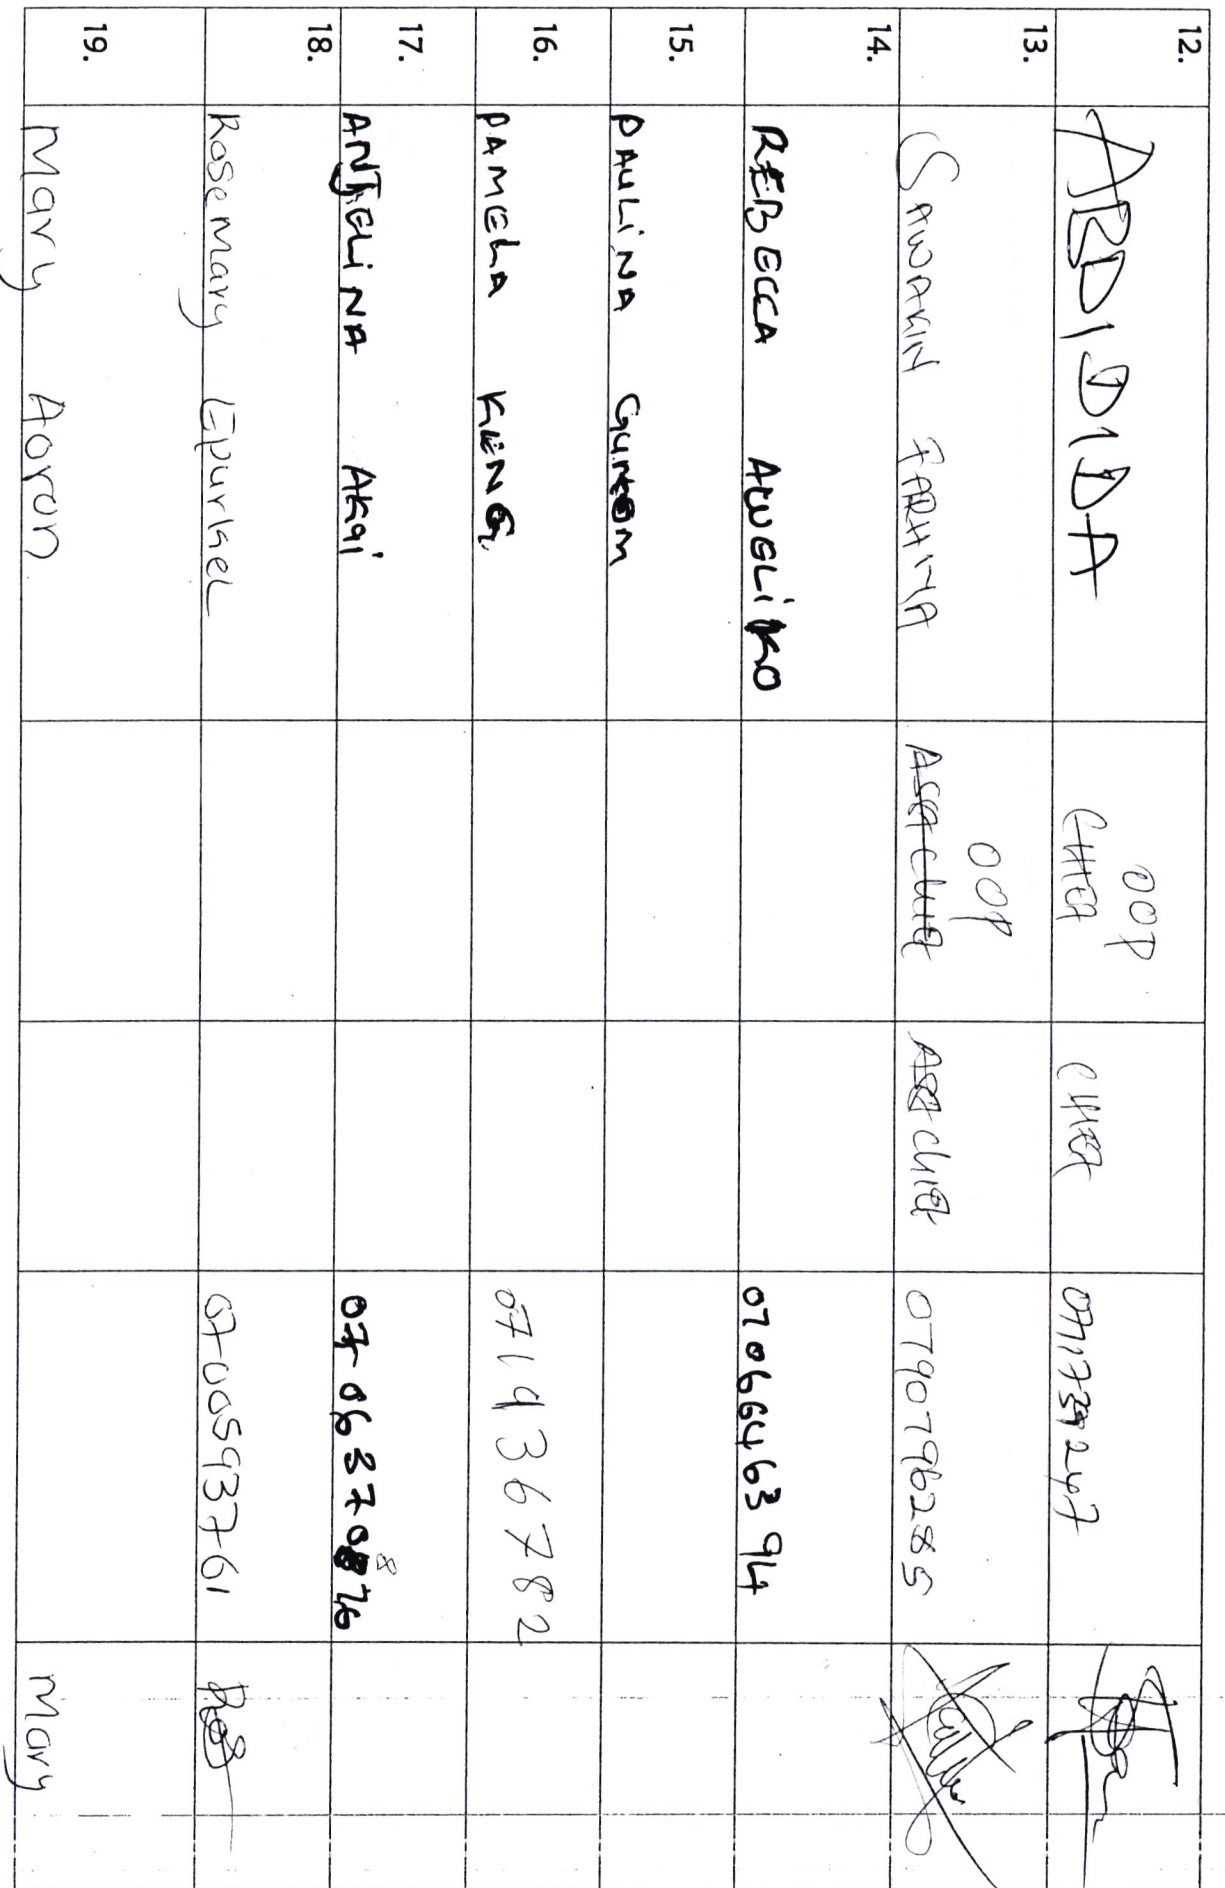 12. ABDI DIDA OOP CHIEF CHIEF
13. SAWAKIN FARHIYA OOP Asst chief Asst chief 0790796285
14. REBECCA AWELIKO 0706646394
15. PAULINA
16. PAMELA KENG 0714936782
17. ANJELINA AKAi
18. Rosemary Epurkel 0700593761
19. Mary Aoron Mary